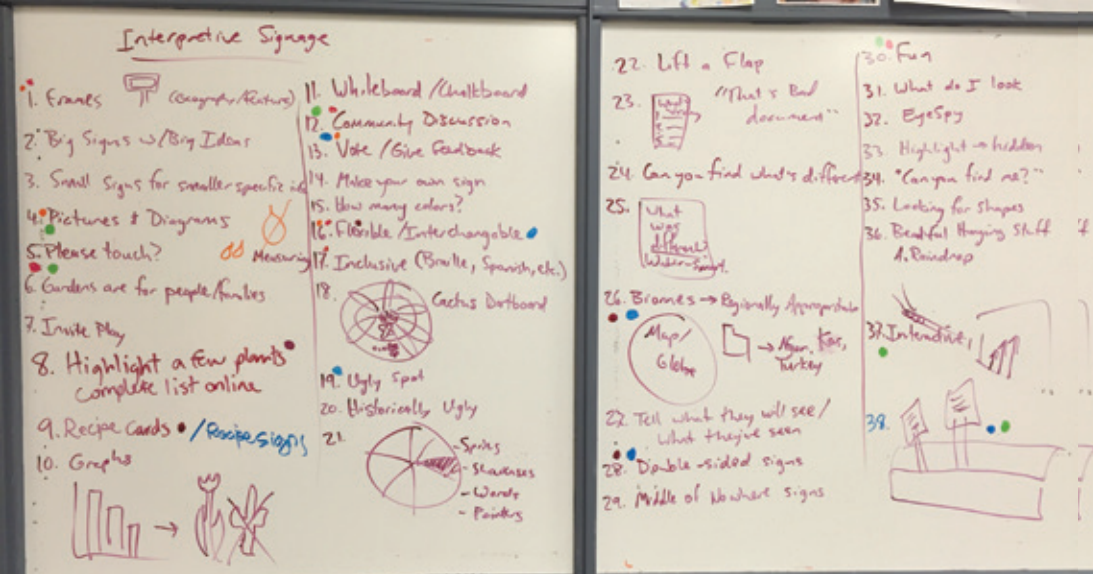 Interpretive Signage
1. Frames (Geography/Feature)
2. Big Signs w/Big Ideas
3. Small Signs for smaller specific
4. Pictures & Diagrams
5. Please touch?
Measuring
6. Gardens are for people/families
7. Invite Play
8. Highlight a few plants
complete list online
9. Recipe Cards /Recipe signs
10. Graphs
11. Whiteboard/Chalkboard
12. Community Discussion
13. Vote/Give Feedback
14. Make your own sign
15. How many colors?
16. Flexible/Interchangable
17. Inclusive (Braille, Spanish, etc.)
18. Cactus Dartboard
19. Ugly Spot
20. Historically Ugly
21.
- Spines
- Words
- Pointers
22. Lift a Flap
23. "That's Bad
document"
24. Can you find what's different
25. What
was
different?
26. Biomes → Regionally Appropriate
Map/
Globe
→
Turkey
27. Tell what they will see/
what they've seen
28. Double-sided signs
29. Middle of Nowhere signs
30. Fun
31. What do I look
32. EyeSpy
33. Highlight → hidden
34. "Can you find me?"
35. Looking for shapes
36. Beatiful Hanging Stuff
A. Raindrop
37. Interactive
38.